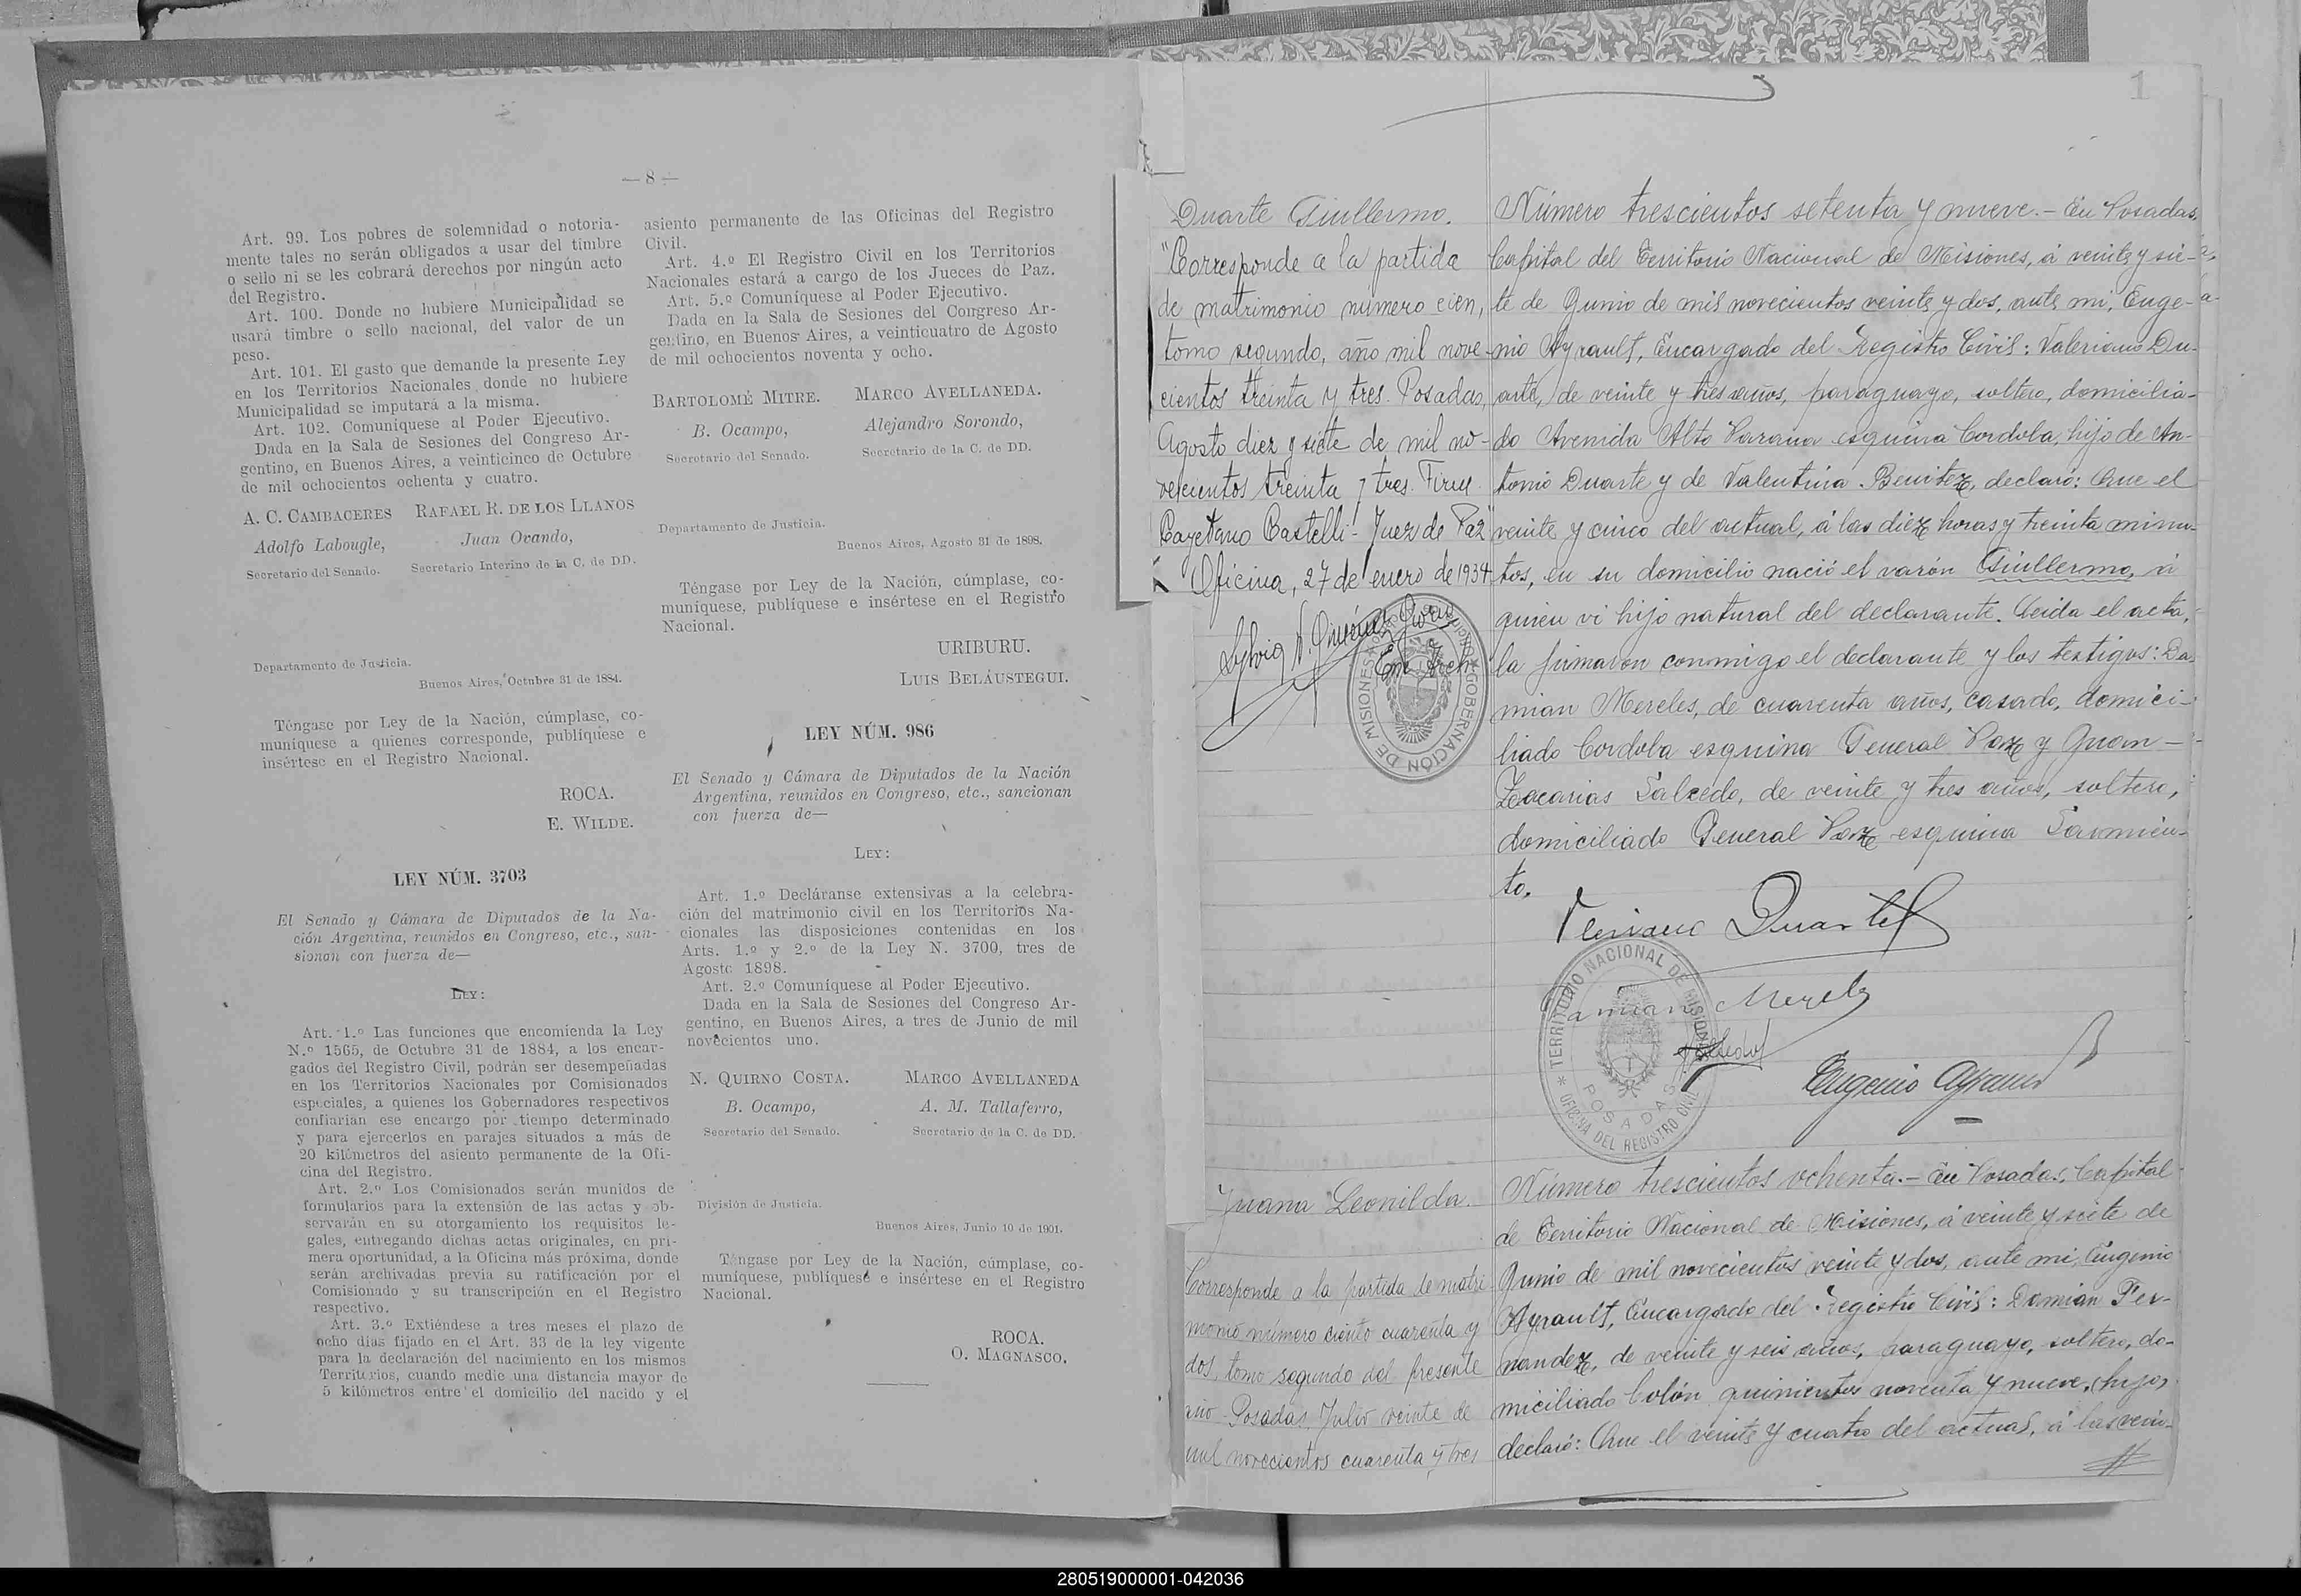 — 8 —
Art. 99. Los pobres de solemnidad o notoria-
mente tales no serán obligados a usar del timbre
o sello ni se les cobrará derechos por ningún acto
del Registro.
Art. 100. Donde no hubiere Municipalidad se
usará timbre o sello nacional, del valor de un
peso.
Art. 101. El gasto que demande la presente Ley
en los Territorios Nacionales donde no hubiere
Municipalidad se imputará a la misma.
Art. 102. Comuníquese al Poder Ejecutivo.
Dada en la Sala de Sesiones del Congreso Ar-
gentino, en Buenos Aires, a veinticinco de Octubre
de mil ochocientos ochenta y cuatro.
A. C. CAMBACERES RAFAEL R. DE LOS LLANOS
Adolfo Labougle, Juan Ovando,
Secretario del Senado. Secretario Interino de la C. de DD.
Departamento de Justicia.
Buenos Aires, Octubre 31 de 1884.
Téngase por Ley de la Nación, cúmplase, co-
muníquese a quienes corresponde, publíquese e
insértese en el Registro Nacional.
ROCA.
E. WILDE.
LEY NÚM. 3703
El Senado y Cámara de Diputados de la Na-
ción Argentina, reunidos en Congreso, etc., san-
sionan con fuerza de—
LEY:
Art. 1.º Las funciones que encomienda la Ley
N.º 1565, de Octubre 31 de 1884, a los encar-
gados del Registro Civil, podrán ser desempeñadas
en los Territorios Nacionales por Comisionados
especiales, a quienes los Gobernadores respectivos
confiarían ese encargo por tiempo determinado
y para ejercerlos en parajes situados a más de
20 kilómetros del asiento permanente de la Ofi-
cina del Registro.
Art. 2.º Los Comisionados serán munidos de
formularios para la extensión de las actas y ob-
servarán en su otorgamiento los requisitos le-
gales, entregando dichas actas originales, en pri-
mera oportunidad, a la Oficina más próxima, donde
serán archivadas previa su ratificación por el
Comisionado y su transcripción en el Registro
respectivo.
Art. 3.º Extiéndese a tres meses el plazo de
ocho días fijado en el Art. 33 de la ley vigente
para la declaración del nacimiento en los mismos
Territorios, cuando medie una distancia mayor de
5 kilómetros entre el domicilio del nacido y el
asiento permanente de las Oficinas del Registro
Civil.
Art. 4.º El Registro Civil en los Territorios
Nacionales estará a cargo de los Jueces de Paz.
Art. 5.º Comuníquese al Poder Ejecutivo.
Dada en la Sala de Sesiones del Congreso Ar-
gentino, en Buenos Aires, a veinticuatro de Agosto
de mil ochocientos noventa y ocho.
BARTOLOMÉ MITRE. MARCO AVELLANEDA.
B. Ocampo, Alejandro Sorondo,
Secretario del Senado. Secretario de la C. de DD.
Departamento de Justicia.
Buenos Aires, Agosto 31 de 1898.
Téngase por Ley de la Nación, cúmplase, co-
muníquese, publíquese e insértese en el Registro
Nacional.
URIBURU.
LUIS BELÁUSTEGUI.
LEY NÚM. 986
El Senado y Cámara de Diputados de la Nación
Argentina, reunidos en Congreso, etc., sancionan
con fuerza de—
LEY:
Art. 1.º Decláranse extensivas a la celebra-
ción del matrimonio civil en los Territorios Na-
cionales las disposiciones contenidas en los
Arts. 1.º y 2.º de la Ley N. 3700, tres de
Agosto 1898.
Art. 2.º Comuníquese al Poder Ejecutivo.
Dada en la Sala de Sesiones del Congreso Ar-
gentino, en Buenos Aires, a tres de Junio de mil
novecientos uno.
N. QUIRNO COSTA. MARCO AVELLANEDA
B. Ocampo, A. M. Tallaferro,
Secretario del Senado. Secretario de la C. de DD.
División de Justicia.
Buenos Aires, Junio 10 de 1901.
Téngase por Ley de la Nación, cúmplase, co-
muníquese, publíquese e insértese en el Registro
Nacional.
ROCA.
O. MAGNASCO.
1
Duarte Guillermo.
"Corresponde a la partida
de matrimonio número cien,
tomo segundo, año mil nove-
cientos treinta y tres. Posadas,
Agosto diez y siete de mil no-
vecientos treinta y tres. Firm.
Cayetano Castelli - Juez de Paz"
Oficina, 27 de enero de 1934
GOBERNACIÓN DE MISIONES
Número trescientos setenta y nueve.- En Posadas,
Capital del Territorio Nacional de Misiones, á veinte y sie-
te de Junio de mil novecientos veinte y dos, ante mi, Euge-
nio Ayrault, Encargado del Registro Civil: Valeriano Du-
arte, de veinte y tres años, paraguayo, soltero, domicilia-
do Avenida Alto Parana esquina Cordoba, hijo de An-
tonio Duarte y de Valentina Benitez, declaró: Que el
veinte y cinco del actual, á las diez horas y treinta minu-
tos, en su domicilio nació el varón Guillermo, á
quien vi hijo natural del declarante. Leida el acta,
la firmaron conmigo el declarante y los testigos: Da-
mian Mereles, de cuarenta años, casado, domici-
liado Cordoba esquina General Paz y Juan
Zacarias Salcedo, de veinte y tres años, soltero,
domiciliado General Paz esquina Sarmien-
to.
Duarte
TERRITORIO NACIONAL DE MISIONES
POSADAS
OFICINA DEL REGISTRO CIVIL
Eugenio Ayrault
Juana Leonilda.
Corresponde a la partida de matri-
monio número ciento cuarenta y
dos, tomo segundo del presente
año. Posadas, Julio veinte de
mil novecientos cuarenta y tres
Número trescientos ochenta.- En Posadas, Capital
de Territorio Nacional de Misiones, á veinte y siete de
Junio de mil novecientos veinte y dos, ante mi, Eugenio
Ayrault, Encargado del Registro Civil: Damian Fer-
nandez, de veinte y seis años, paraguayo, soltero, do-
miciliado Colón quinientos noventa y nueve, (hijo)
declaró: Que el veinte y cuatro del actual, á las vein-
280519000001-042036